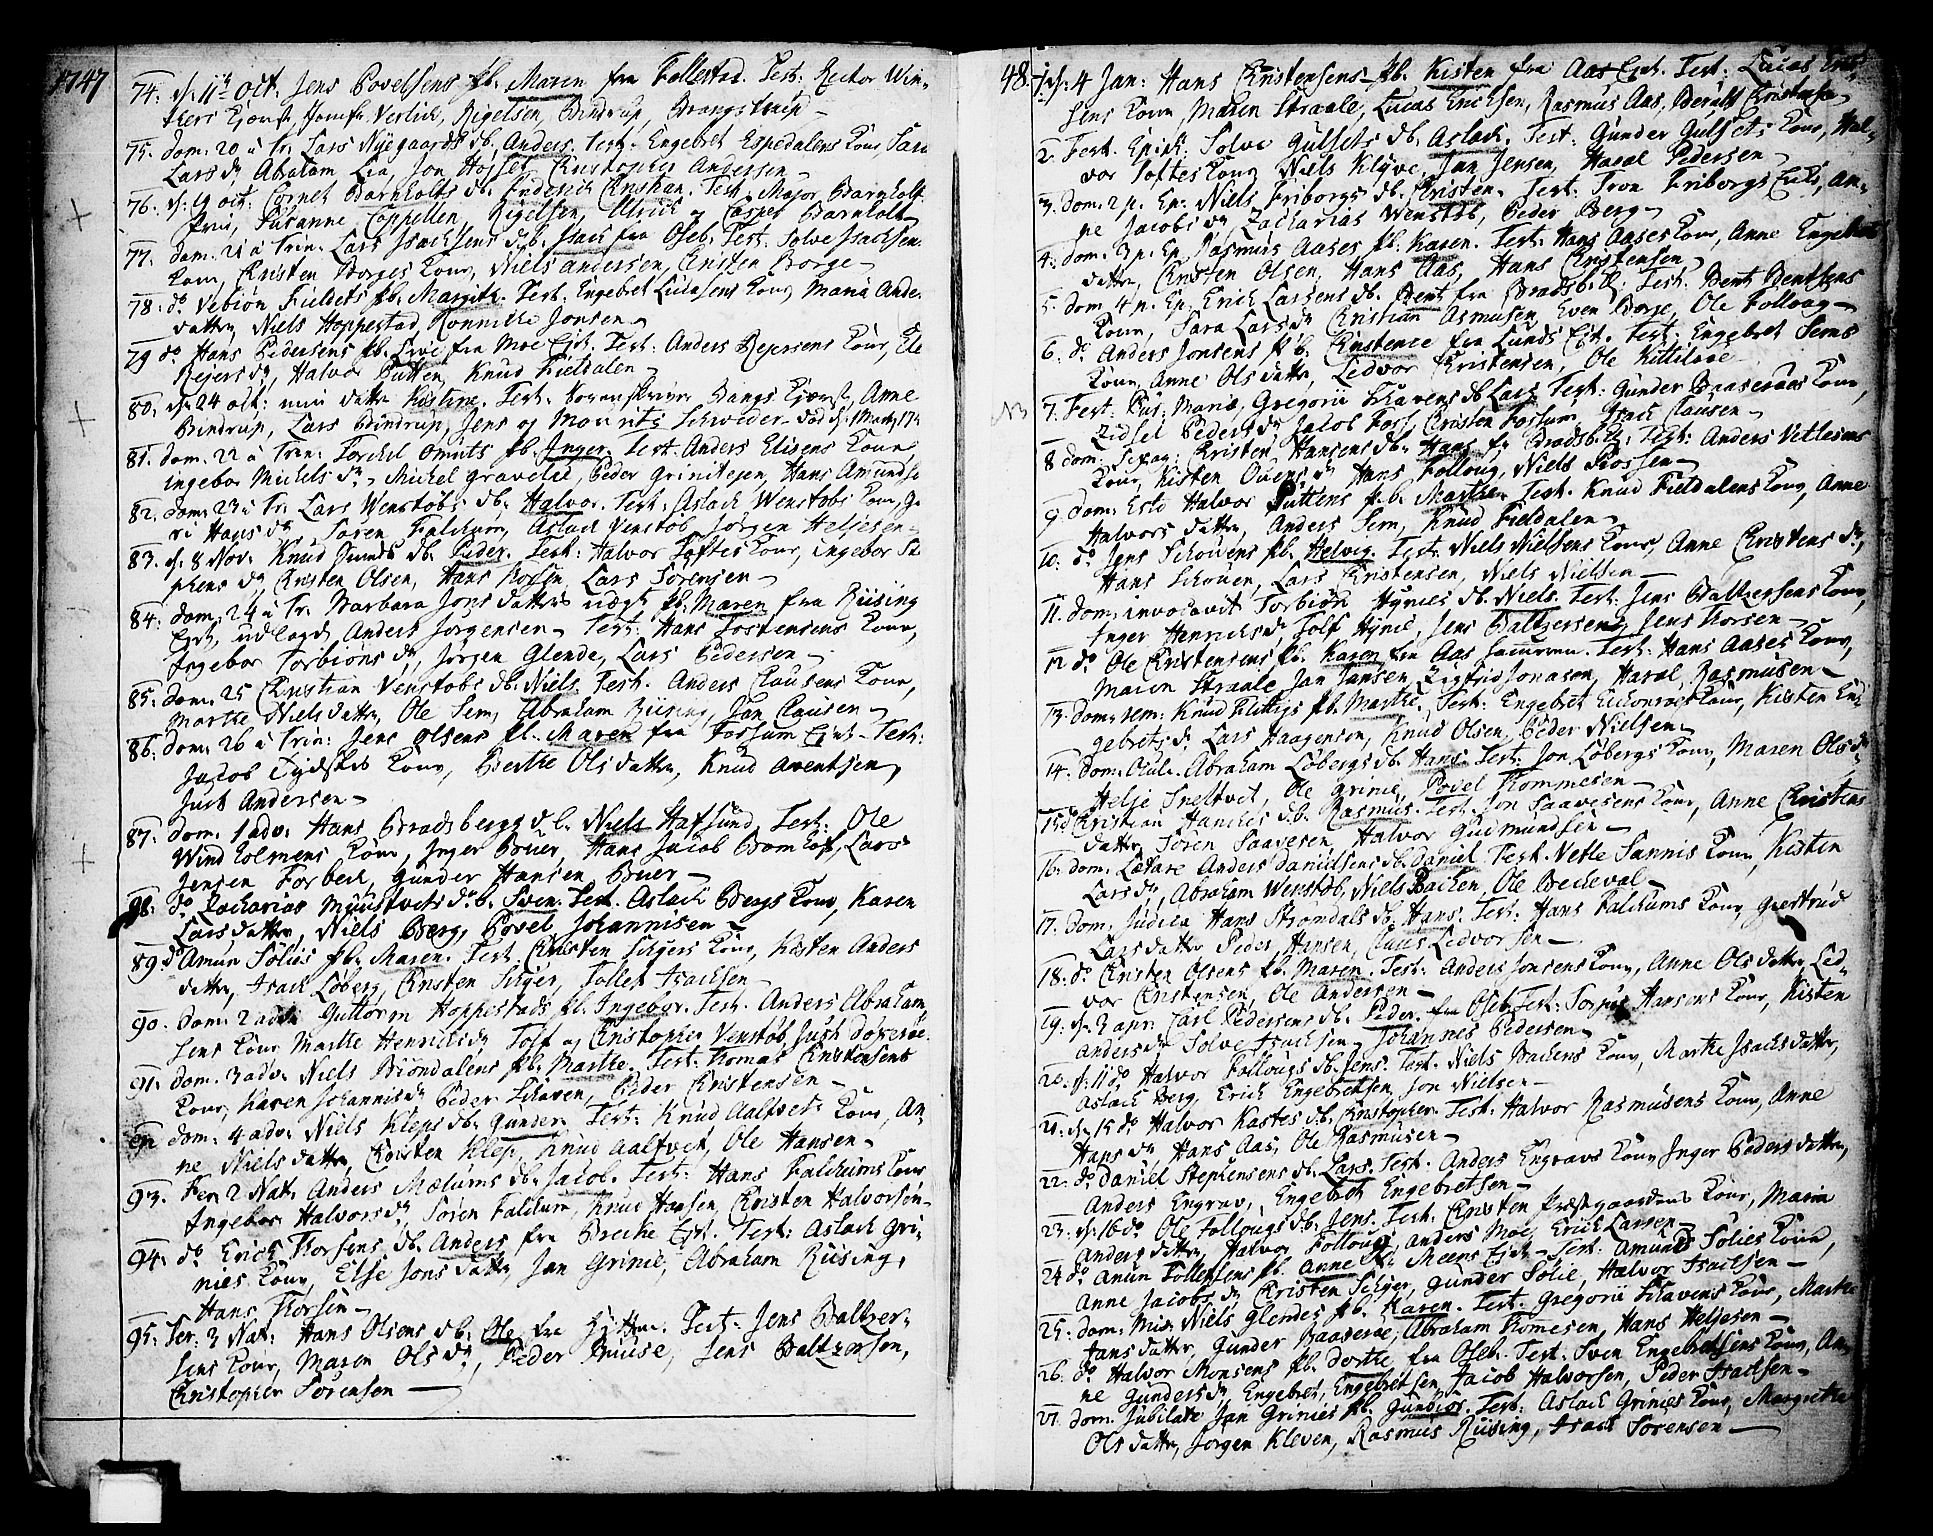 1747
74. d: 11te Oct. Jens Povelsens pb. Maren fra Follestad. Test: Rector Win-
thers Kjereste, Verlich, Rigelsen, Bindrup, Brangstrup
75. dom. 20 a Tr. Lars Nyegaards db. Anders. Test: Engebret Espedalens Kone, Sara
Larsdr, Abraham Lia, Jon Hofset, Christopher Andersen
76. d: 19 Oct: Cornet Barnholts db. Friderich Christian. Test. Major Barnholts
Frue, Susanne Coppellen, Rigelsen, Ulrich og Casper Barnholt
77. dom. 21 a Trin: Lars Isachsens db. Isach fra Oseb. Test. Solve Isachsens
Kone, Christen Borges Kone, Niels Andersen, Christen Borge
78. do Vebiøn Fieldets pb. Margithe. Test. Engebret Lucasens Kone, Maria Anders
datter, Niels Hoppestad, Jonsen
79 do Hans Pedersens pb. fra Moe Eje. Test: Anders Rejersens Kone, Ele
Rejersdr, Halvor Putten, Knud Fieldalen
80. d: 24 Oct: min datter Kistine. Test. Bangs Kjereste, Anne
Bindrup, Lars Bindrup, Jens og Mouritz Schweder
81. dom. 22 a Trin: Torchel Omnts pb. Inger. Test. Anders Elisens Kone,
Ingebor Michelsdr, Michel Gravelie, Peder Grinilejen, Hans Amunds
82. dom. 23 a Tr. Lars Wenstøbs db. Halvor. Test: Aslach Wenstøbs Kone,
ri Hansdr, Søren Falchum, Aslach Venstøb, Jørgen Heljesen
83. d: 8 Nov: Knud Junds db. Peder. Test: Halvor Toftes Kone, Ingebor St
phensdr, Christen Olsen, Hans, Lars Sørensen
84: dom. 24 a Tr. Barbara Jonsdatters uægt. pb. Maren fra Riising
Eje, udlagd Anders Jørgensen. Test: Hans Tostensens Kone,
Ingebor Torbiønsdr, Jørgen Glende, Lars Pedersen
85. dom. 25 Christian Venstøbs db. Niels. Test. Anders Clausens Kone,
Marthe Nielsdatter, Ole Sem, Abraham Riising, Jan Clausen
86. dom. 26 a Trin: Jens Olsens pb. Maren fra Fossum Eje. Test:
Jacob Tydskes Kone, Berthe Olsdatter, Knud Aventsen,
Just Andersen
87. dom. 1 adv. Hans Bradsbergs db. Niels Hafsund. Test: Ole
Windholmens Kone, Inger Bruer, Hans Jacob Bomhof, Lars
Jensen Forbech, Gunder Hansen Bruer
88. do Zacharias db. Sven. Test. Aslach Bergs Kone, Karen
Larsdatter, Niels Berg, Povel Johannisen
89. do Amun Solies pb. Maren. Test. Christen Kone, Kisten Anders
datter, Isach Løberg, Christen, Tollef Isachsen
90. dom. 2 adv. Guttorm Hoppestads pb. Ingebor. Test. Anders Abraham
sens Kone, Marthe Henrichsdr, Toff og Christopher Venstøb, Just
91. dom. 3 adv. Niels Biøndalens pb. Marthe. Test. Thomas Christensens
Kone, Karen Johannisdr, Peder Schaven, Peder Christensen
92. dom. 4 adv. Niels Kleps db. Gunder. Test: Knud Aaltvets Kone, An-
ne Nielsdatter, Christen Klep, Knud Aaltvet, Ole Hansen
93. Fer. 2 Nat. Anders Mælums db. Jacob. Test: Hans Falchums Kone
Ingebor Halvorsdr, Søren Falchum, Knud Hansen, Christen Halvorsen
94. do Erich Thorsens db. Anders fra Breche Eje. Test: Aslach Gri-
nies Kone, Else Jonsdatter, Jan Grinie, Abraham Riising,
Hans Thorsen
95. Fer. 3 Nat. Hans Olsens db. Ole fra Hytten. Test: Jens Baltzer-
sens Kone, Maren Olsdr, Peder Kruuse, Jens Baltzersen,
Christopher Sørensen
48.
1. d: 4 Jan: Hans Christensens pb. Kisten fra Aas Eje. Test: Lucas Erich-
sens Kone, Maren Straale, Lucas Erichsen, Rasmus Aas, Berulf Christensen
2. Fest. Epiph. Solve Gulsets db. Aslach. Test: Gunder Gulsets Kone, Hal-
vor Toftes Kone, Niels Klyve, Jan Jensen, Haral Pedersen
3. dom. 2 p. Ep. Niels Friborgs db. Christen. Test: Tron Friborgs Enke, An-
ne Jacobsdr, Zacharias Wenstøb, Peder Berg
4. dom. 3 p. Ep. Rasmus Aases pb. Karen. Test: Hans Aases Kone, Anne Engebrets
datter, Christen Olsen, Hans Aas, Hans Christensen
5. dom 4 p. Ep. Erich Larsens db. Bent fra Bradsb. Test. Bent Bentsens
Kone, Sara Larsdr, Christian Asmusen, Even Borge, Ole Follaug
6. do Anders Jonsens pb. Christence fra Lunds Eje. Test: Engebret Sems
Kone, Anne Olsdatter, Ledvor Christensen, Ole Kittilsen
NB 7. Fest. Pur. Mariæ, Gregorii Schavens db Lars. Test: Gunder Baaserøes Kone,
Zidsel Pedersdr, Jacob Foss, Christen Fossum, Isach Clausen
8 dom: Sexag: Christen Hansens db. Hans fr Bradsb. Test: Anders Vetlesens
Kone, Kisten Ovensdr, Hans Follaug, Niels Rossen
9. dom: Esto Halvor Puttens pb. Marthe. Test. Knud Fieldalens Kone, Anne
Halvorsdatter, Anders Sem, Knud Fieldalen
10. do Jens Schouens pb. Helvig. Test. Niels Nielsens Kone, Anne Christensdr,
Hans Schouen, Lars Christensen, Niels Nielsen
11. dom. invocavit Torbiøn Hynies db. Niels. Test: Jens Baltzersens Kone,
Inger Henrichsdr, Tolf Hynie, Jens Baltzersen, Jens Thorsen
12 do Ole Christensens pb. Karen fra Aas. Test: Hans Aases Kone,
Maren Straale, Jan Jansen, Zigfrid Jonasen, Haral Rasmusen
13. dom. rem: Knud Flittigs pb. Marthe. Test: Engebret Kone, Kisten En-
gebretsdr, Lars Haagensen, Knud Olsen, Peder Nielsen
14. dom. Oculi. Abraham Løbergs db. Hans. Test: Jon Løbergs Kone, Maren Olsdr,
Helje Sneltvet, Ole Grinie, Povel Thommesen
15 do Christian Hanches db. Rasmus. Test. Jon Saavesens Kone, Anne Christens
datter, Søren Saavesen, Halvor Gudmundsen
16. dom. Lætare Anders Danielsens db. Daniel. Test. Vetle Sannis Kone, Kisten
Larsdr, Abraham Wenstøb, Niels Bachen, Ole Becheval
17. Dom. Judica Hans Strømdals db. Hans. Test: Hans Falchums Kone, Giertrud
Larsdatter, Peder Hansen, Claus Ledvorsen
18. do Christen Olsens pb. Maren. Test: Anders Jonsens Kone, Anne Olsdatter, Led-
vor Christensen, Ole Andersen
19. d. 3 apr. Carl Pedersens db. Peder fra Oseb. Test: Torjus Hansens Kone, Kisten
Andersdr, Solve Isachsen, Johannes Pedersen
20. d: 11 do Halvor Follougs db. Jens. Test. Niels Bachens Kone, Marthe Isachsdatter,
Aslach Berg, Erich Engebretsen, Jon Nielsen
21. d. 15 do Halvor Kastes db. Christopher. Test: Halvor Rasmusens Kone, Anne
Hansdr, Hans Aas, Ole Rasmusen
22. do Daniel Stephensens db. Lars. Test. Anders Engravs Kone, Inger Pedersdatter,
Anders Engrav, Engebret Engebretsen
23. d: 16 do Ole Follougs db. Jens. Test. Christen Præstgaardens Kone, Maria
Andersdatter, Halvor Follaug, Anders Moe, Erich Larsen
24 do Amun Tollefsens pb. Anne fr Meens Eje. Test. Amund Solies Kone,
Anne Jacobsdr, Christen, Gunder Solie, Halvor Isachsen
25. dom. Mis. Niels Glendes pb. Karen. Test: Gregorii Schavens Kone, Marthe
Jansdatter, Gunder Baaserøe, Abraham Thomesen, Hans Heljesen
26. do Halvor Monsens pb. Dorthe fra Oseb. Test. Sven Engebretsens Kone, An-
ne Gundersdr, Engebret Engebretsen, Jacob Halvorsen, Peder Isachsen
27. dom. Jubilate Jan Grinies pb. Gundior. Test: Aslach Grinies Kone, Margrethe
Olsdatter, Jørgen Kleven, Rasmus Riising, Isach Sørensen